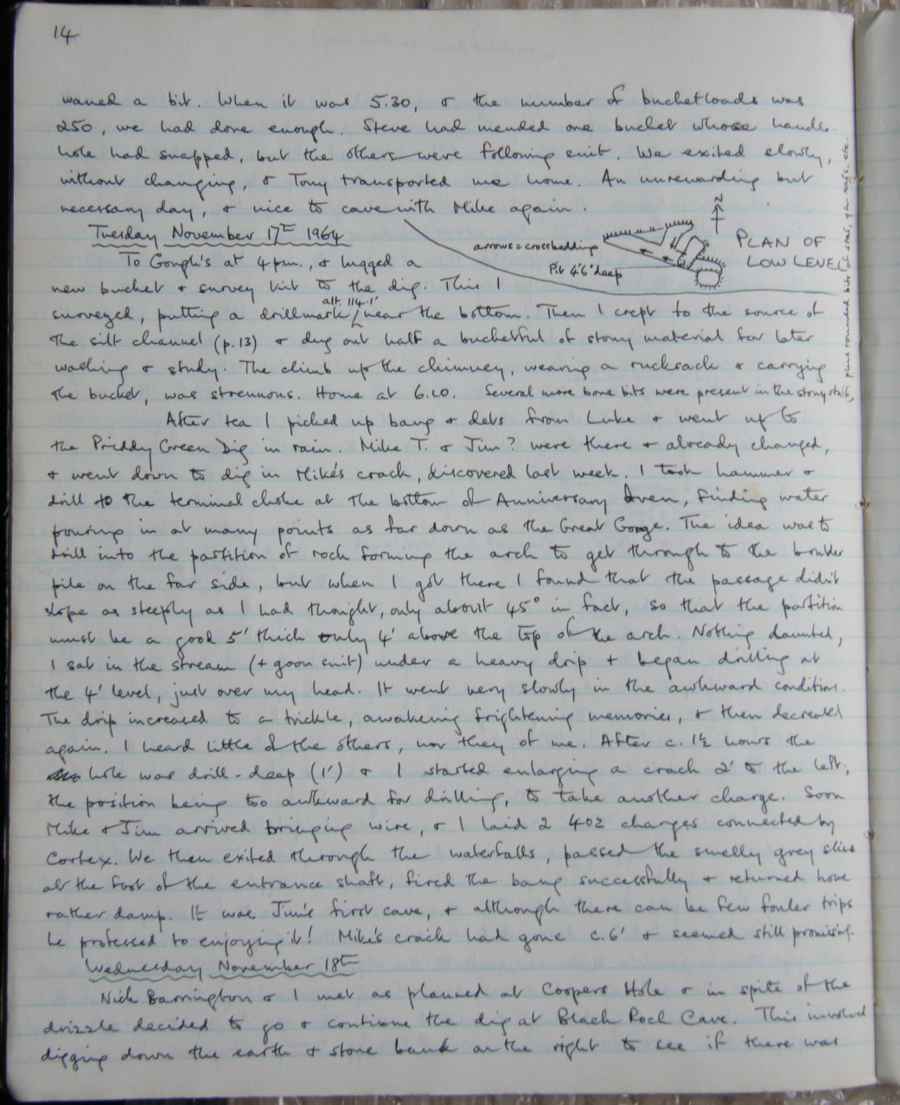 14
waned a bit. When it was 5.30, & the number of bucketloads was
250, we had done enough. Steve had mended one bucket whose handle
hole had snapped, but the others were following suit. We exited slowly,
without changing, & Tony transported me home. An unrewarding but
necessary day, & nice to cave with Mike again.
Tuesday November 17th 1964
N
arrows = crossbedding
Pit 4'6" deep
PLAN OF
LOW LEVEL
To Gough's at 4 pm., & lugged a
new bucket & survey kit to the dig. This I
surveyed, putting a drillmark alt. 114.1' near the bottom. Then I crept to the source of
the silt channel (p.13) & dug out half a bucketful of stony material for later
washing & study. The climb up the chimney, wearing a rucksack & carrying
the bucket, was strenuous. Home at 6.10. Several more bone bits were present in the stony stuff,
plus rounded bits of
After tea I picked up bang & dets from Luke & went up to
the Priddy Green Dig in rain. Mike T. & Jim? were there & already changed,
& went down to dig in Mike's crack, discovered last week. I took hammer &
drill to the terminal choke at the bottom of Anniversary Oven, finding water
pouring in at many points as far down as the Great Gorge. The idea was to
drill into the partition of rock forming the arch to get through to the boulder
pile on the far side, but when I got there I found that the passage didn't
slope as steeply as I had thought, only about 45° in fact, so that the partition
must be a good 5' thick only 4' above the top of the arch. Nothing daunted,
I sat in the stream (+ goon suit) under a heavy drip & began drilling at
the 4' level, just over my head. It went very slowly in the awkward conditions.
The drip increased to a trickle, awakening frightening memories, & then decreased
again. I heard little of the others, nor they of me. After c. 1½ hours the
hole was drill-deep (1') & I started enlarging a crack 2' to the left,
the position being too awkward for drilling, to take another charge. Soon
Mike & Jim arrived bringing wire, & I laid 2 4oz charges connected by
Cortex. We then exited through the waterfalls, passed the smelly grey slime
at the foot of the entrance shaft, fired the bang successfully & returned home
rather damp. It was Jim's first cave, & although there can be few fouler trips
he professed to enjoying it! Mike's crack had gone c. 6' & seemed still promising.
Wednesday November 18th
Nick Barrington & I met as planned at Coopers Hole & in spite of the
drizzle decided to go & continue the dig at Black Rock Cave. This involved
digging down the earth & stone bank on the right to see if there was